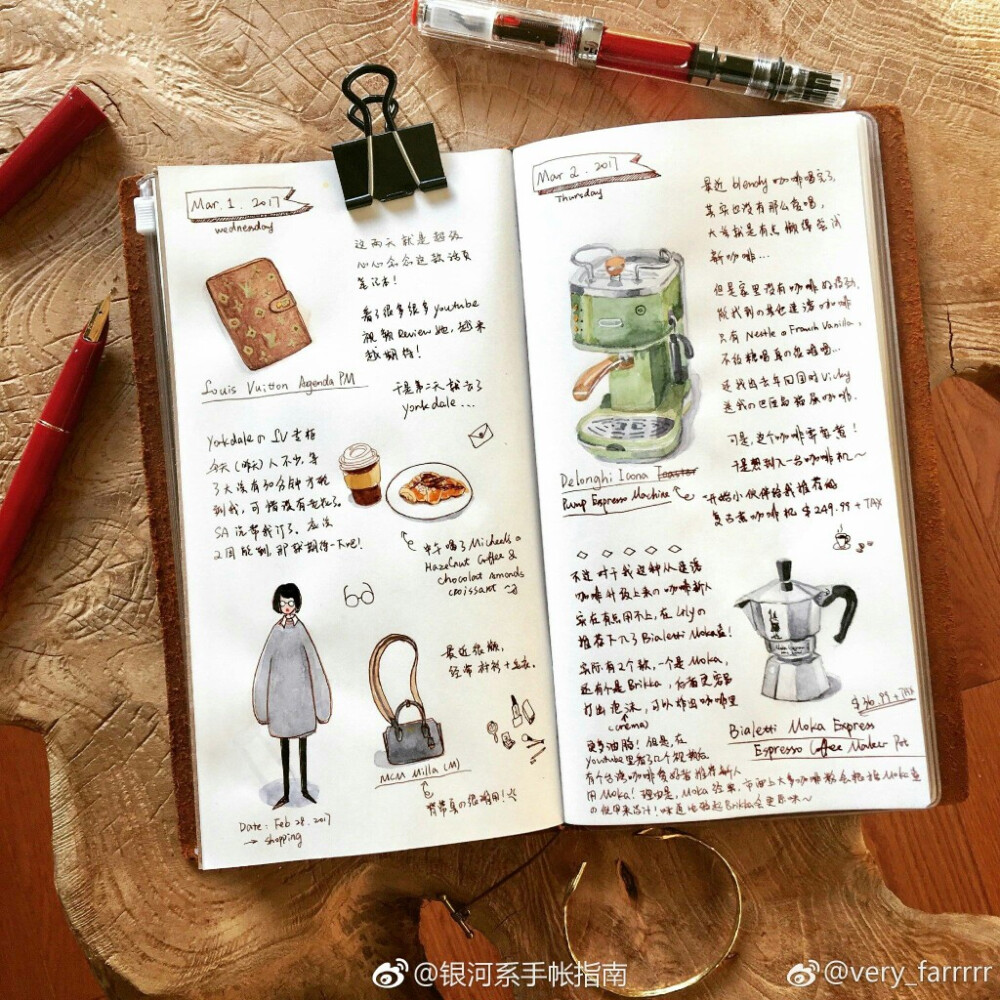 Mar. 1. 2017
wednesday
这两天就是超级
心心念念这款活页
笔记本!
看了很多很多youtube
视频Review她,越来
越期待!
Louis Vuitton Agenda PM
于是第二天就去了
yorkdale...
Yorkdale の LV 专柜
今天(昨天)人不少,等
了大概有30分钟才轮
到我,可惜没有老花了。
SA 说帮我订了,应该
2周能到,那就期待一下吧!
中午喝了Michel's の
Hazelnut Coffee &
chocolat Amonds
croissant
最近很懒,
经常衬衫+毛衣。
MCM Milla (M)
背带真の很难用!
Date: Feb 28. 2017
→ shopping
Mar 2. 2017
Thursday
最近 blendy 咖啡喝完了,
其实也没有那么爱喝,
大概就是有点懒得尝试
新咖啡...
但是家里没有咖啡好痛苦,
能找到の其他速溶咖啡
只有 Nestle の French Vanilla,
不怕糖喝真の很难喝...
还找出去年回国时 Vicky
送我の巴厘岛猫屎咖啡.
可是,这个咖啡需要煮!
于是想到入一台咖啡机~
Delonghi Icona Toaster
Pump Espresso Machine
一开始小伙伴给我推荐の
复古款咖啡机 $249.99 + TAX
不过对于我这种从速溶
咖啡升级上来の咖啡新人
实在有点用不上,在 Lily の
推荐下入了Bialetti Moka壶!
实际有2个款,一个是 Moka,
还有个是 Brikka,后面更容易
打出泡沫,可以榨出咖啡里
(crema)
更多油脂!但是,在
Youtube里看了几个视频后
有个台湾咖啡爱好者推荐新人
用 Moka! 理由是, Moka 经典,市面上大多咖啡粉会根据 Moka 壶
の使用来设计!味道也会比起Brikka会更原味~
$36.99 + TAX
Bialetti Moka Express
Espresso Coffee Maker Pot
@银河系手帐指南
@very_farrrrr